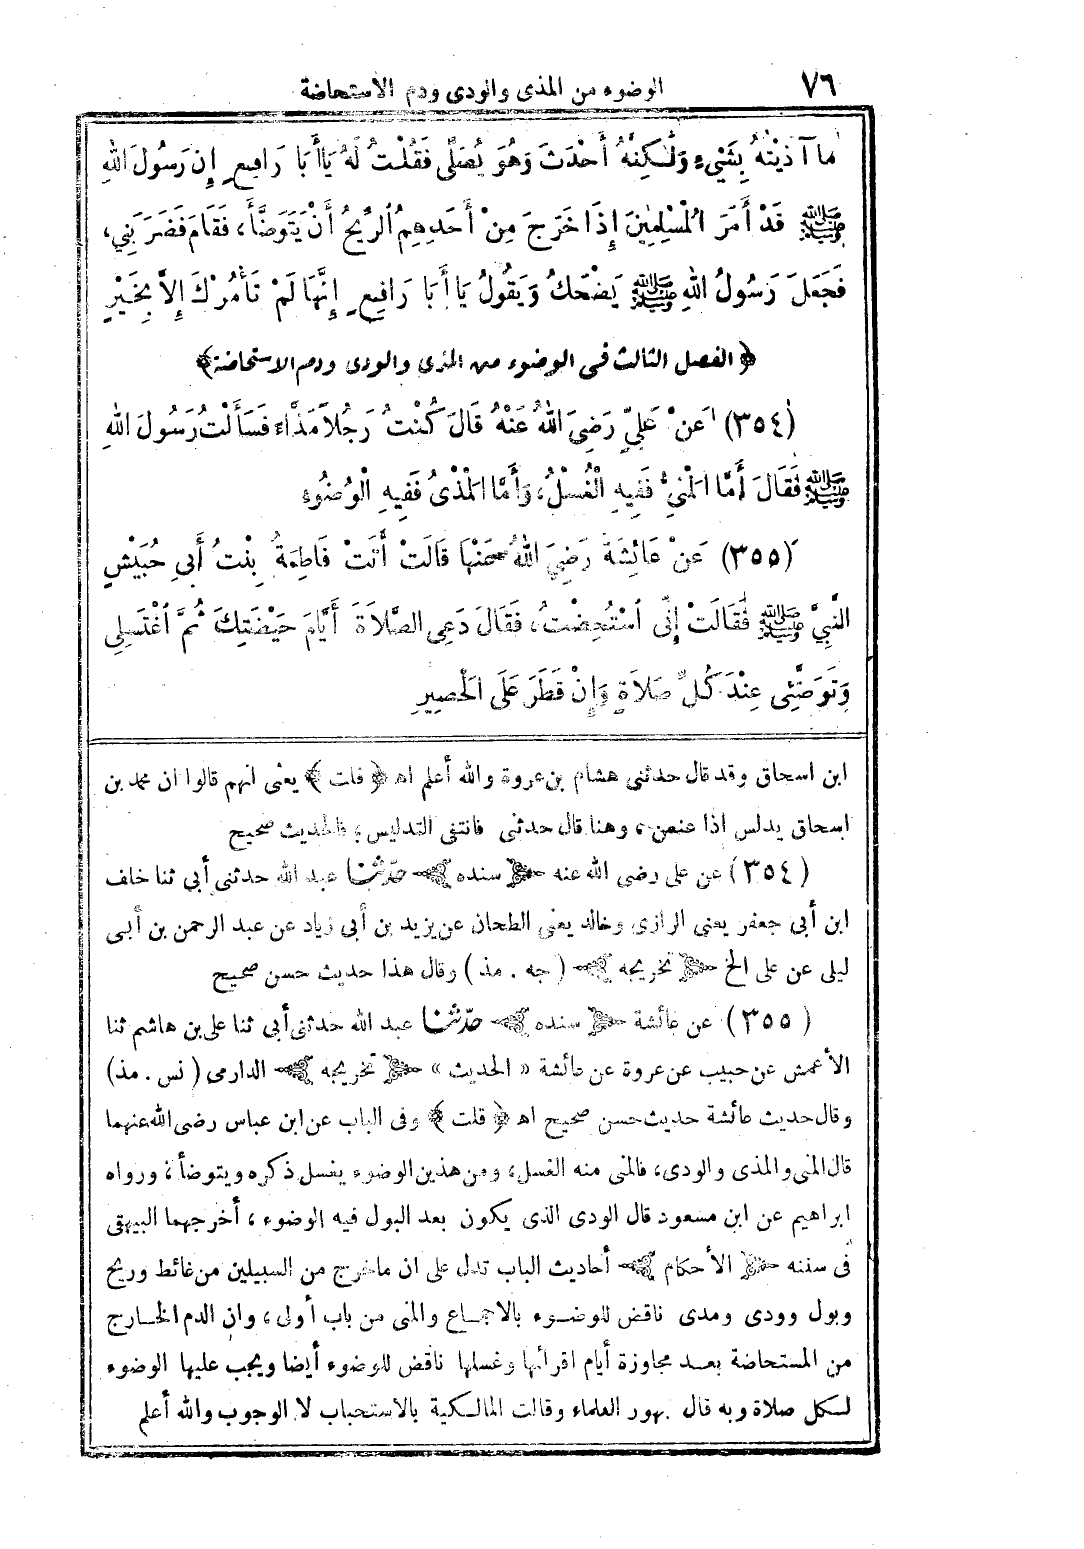 ٧٦
الوضوء من المذى والودى ودم الاستحاضة
مَا آذَيْتُهُ بِشَيْءٍ وَلَكِنَّهُ أَحْدَثَ وَهُوَ يُصَلِّى فَقُلْتُ لَهُ يَاأَبَا رَافِعٍ إِن رَسُولَ اللهِ
ﷺ قَدْ أَمَرَ الْمُسْلِمِينَ إِذَا خَرَجَ مِنْ أَحَدِهِمُ الرِّيحُ أَنْ يَتَوَضَّأَ، فَقَامَ فَضَرَبَنِي،
فَجَعَلَ رَسُولُ اللهِ ﷺ يَضْحَكُ وَيَقُولُ يَا أَبَا رَافِعٍ إِنَّهَا لَمْ تَأْمُرْكَ إِلاَّ بِخَيْرٍ
﴿ الفصل الثالث فى الوضوء من المذى والودى ودم الاستحاضة ﴾
(٣٥٤) عَنْ عَلِيٍّ رَضِيَ اللهُ عَنْهُ قَالَ كُنْتُ رَجُلاً مَذَّاءً فَسَأَلْتُ رَسُولَ اللهِ
ﷺ فَقَالَ أَمَّا الْمَنِيُّ فَفِيهِ الْغُسْلُ، وَأَمَّا الْمَذْىُ فَفِيهِ الْوُضُوءُ
(٣٥٥) عَنْ عَائِشَةَ رَضِيَ اللهُ عَنْهَا قَالَتْ أَتَتْ فَاطِمَةُ بِنْتُ أَبِي حُبَيْشٍ
النَّبِيَّ ﷺ فَقَالَتْ إِنِّى اسْتُحِضْتُ، فَقَالَ دَعِى الصَّلاَةَ أَيَّامَ حَيْضَتِكِ ثُمَّ اغْتَسِلِى
وَتَوَضَّئِى عِنْدَ كُلِّ صَلاَةٍ وَإِنْ قَطَرَ عَلَى الْحَصِيرِ
ابن اسحاق وقد قال حدثنى هشام بن عروة والله أعلم اه ﴿ قلت ﴾ يعنى انهم قالوا ان محمد بن
اسحاق يدلس اذا عنعن، وهنا قال حدثنى فانتفى التدليس، فالحديث صحيح
(٣٥٤) عن على رضى الله عنه ﴿ سنده ﴾ حدّثنا عبد الله حدثنى أبي ثنا خلف
ابن أبي جعفر يعنى الرازى وخالد يعنى الطحان عن يزيد بن أبي زياد عن عبد الرحمن بن أبى
ليلى عن على الخ ﴿ تخريجه ﴾ (جه . مذ) وقال هذا حديث حسن صحيح
(٣٥٥) عن عائشة ﴿ سنده ﴾ حدّثنا عبد الله حدثنى أبي ثنا على بن هاشم ثنا
الأعمش عن حبيب عن عروة عن عائشة «الحديث» ﴿ تخريجه ﴾ الدارمى (نس . مذ)
وقال حديث عائشة حديث حسن صحيح اه ﴿ قلت ﴾ وفى الباب عن ابن عباس رضى الله عنهما
قال المنى والمذى والودى، فالمنى منه الغسل، ومن هذين الوضوء يغسل ذكره ويتوضأ، ورواه
ابراهيم عن ابن مسعود قال الودى الذى يكون بعد البول فيه الوضوء، أخرجهما البيهقى
فى سننه ﴿ الأحكام ﴾ أحاديث الباب تدل على ان ما خرج من السبيلين من غائط وريح
وبول وودى ومدى ناقض للوضوء بالاجماع والمنى من باب أولى، وان الدم الخارج
من المستحاضة بعد مجاوزة أيام اقرائها وغسلها ناقض للوضوء أيضا ويجب عليها الوضوء
لكل صلاة وبه قال جمهور العلماء وقالت المالكية بالاستحباب لا الوجوب والله أعلم